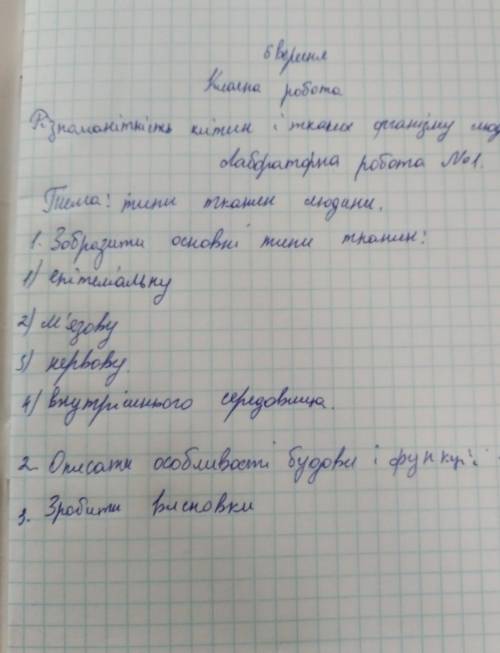 6 вересня
Класна робота
Різноманітність клітин і тканин організму люд
Лабораторна робота №1.
Тема: типи тканин людини.
1. Зобразити основні типи тканин:
1) епітеміальну
2) м'язову
3) нервову.
4) внутрішнього середовища.
2. Описати особливості будови і функції
3. Зробити висновки